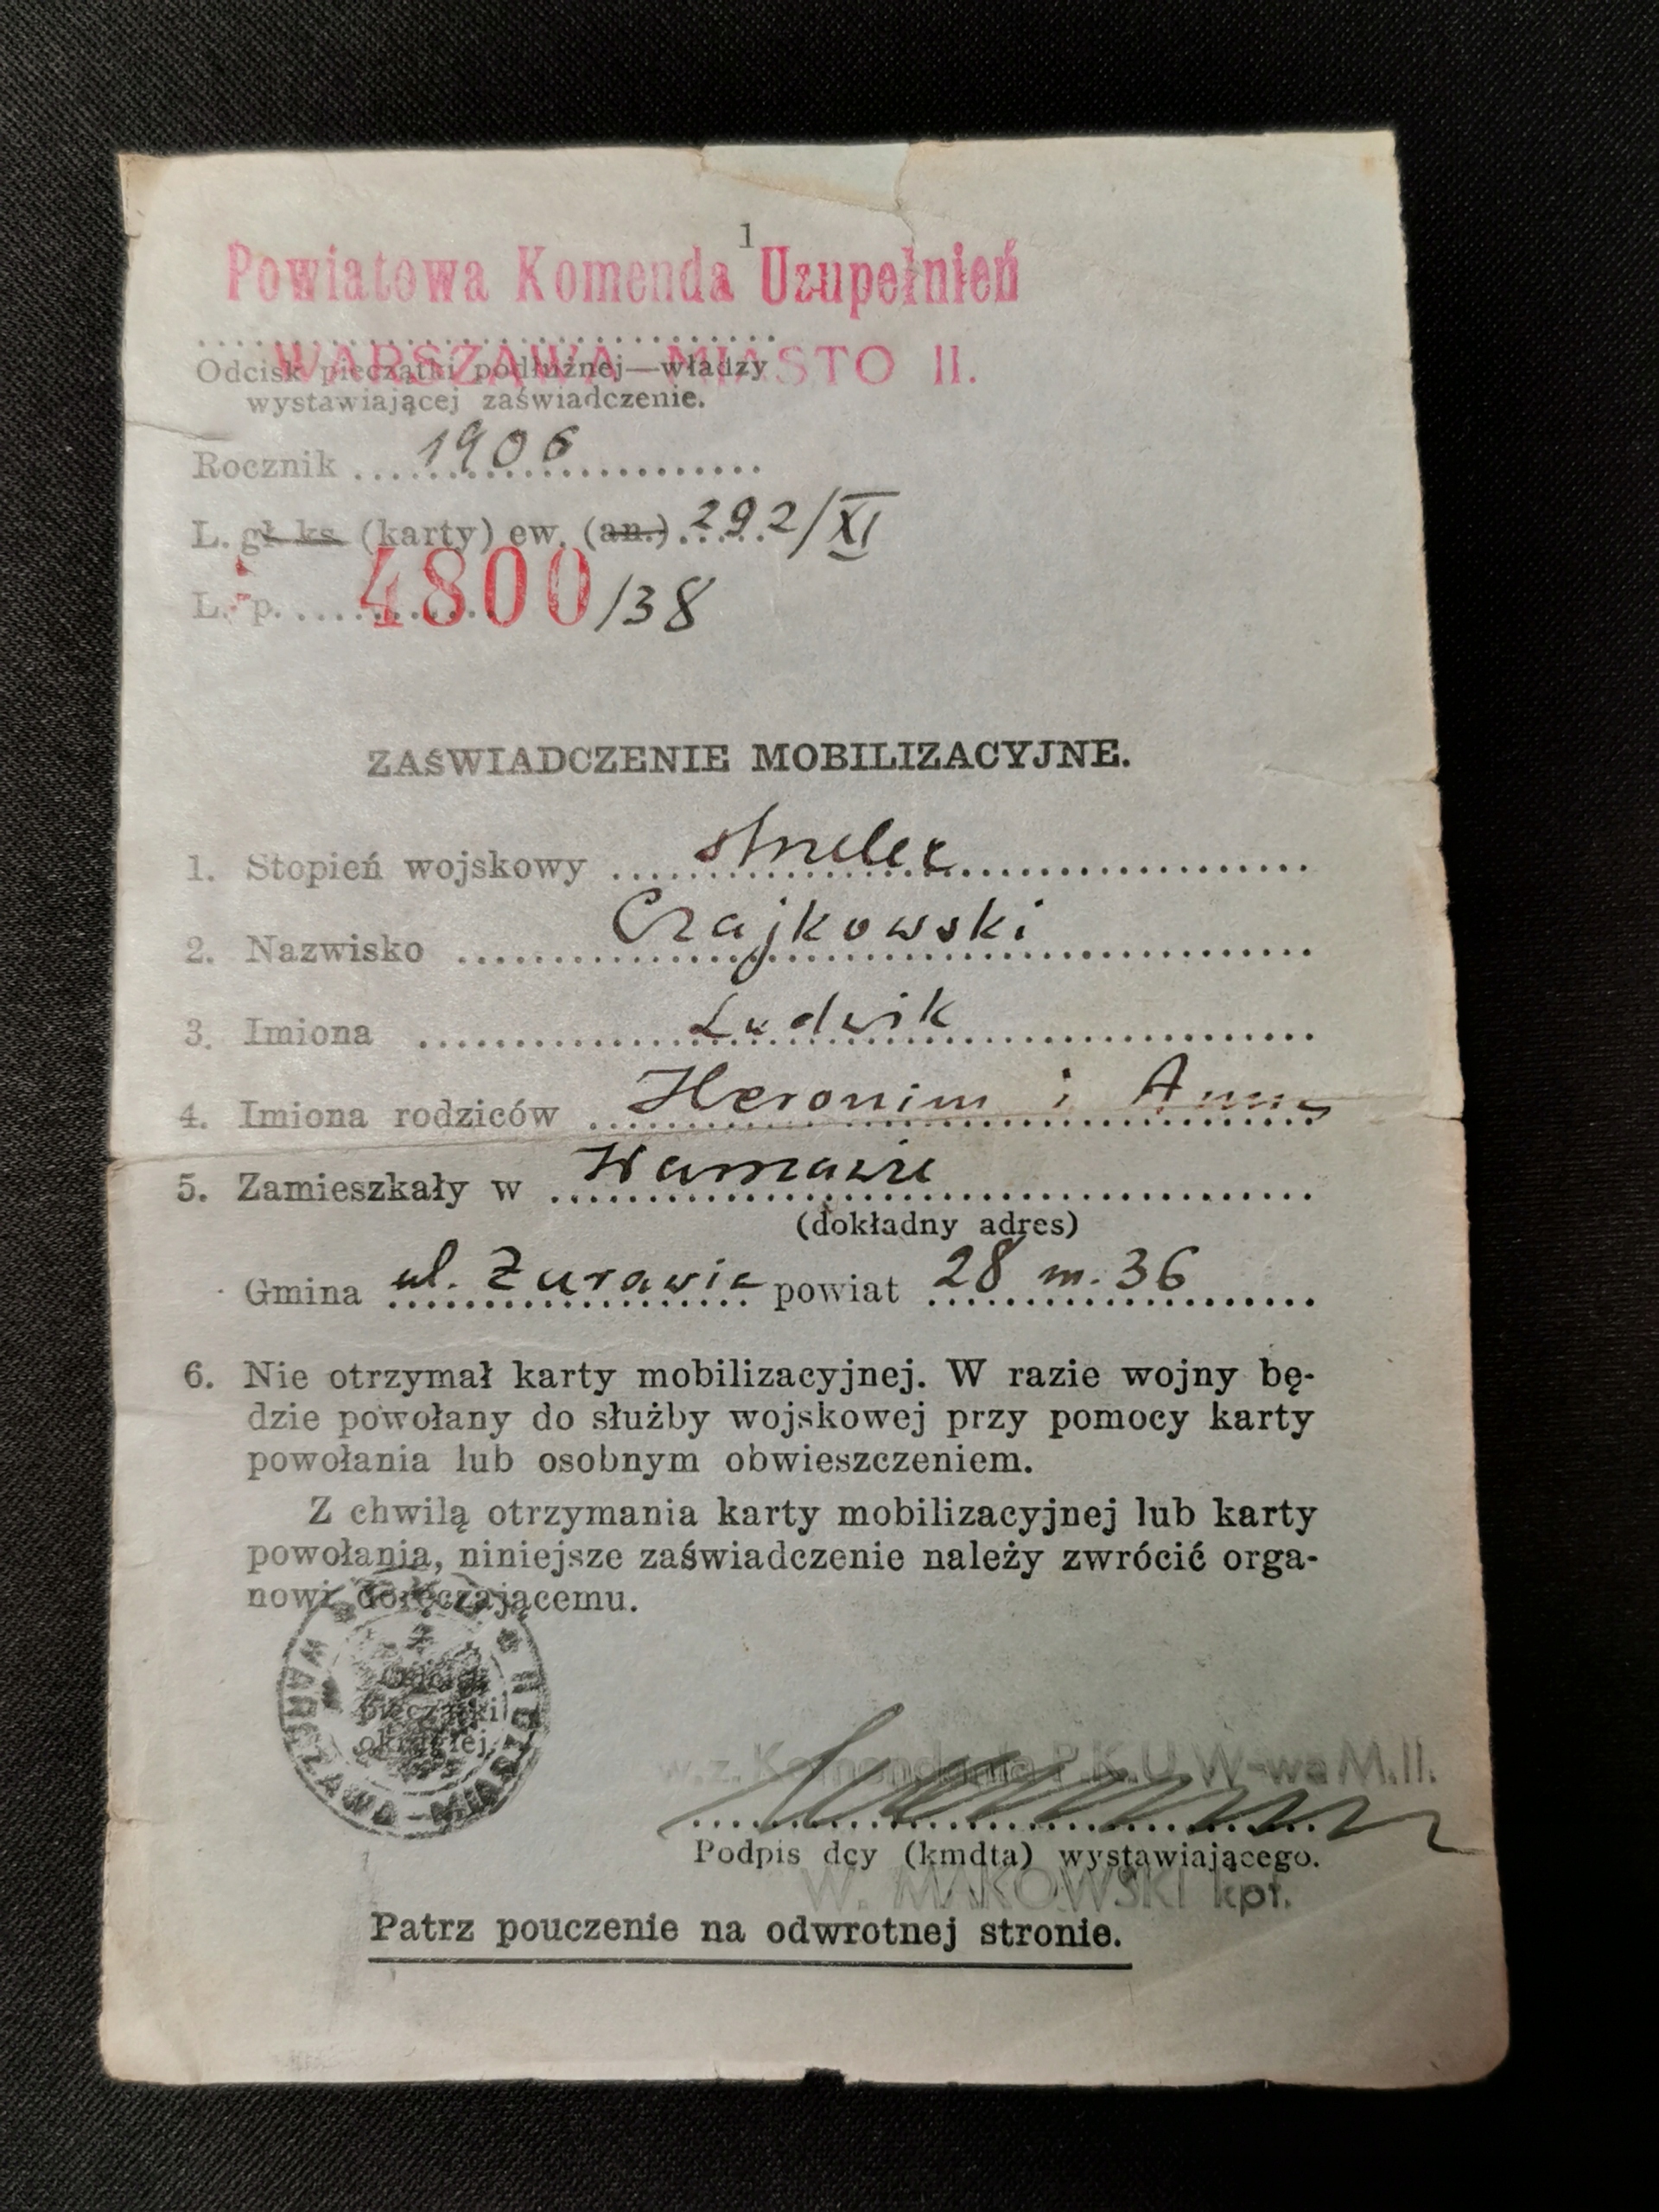 1
Powiatowa Komenda Uzupełnień
WARSZAWA MIASTO II.
Odcisk pieczątki podłużnej—władzy
wystawiającej zaświadczenie.
Rocznik 1906
L. gł. ks. (karty) ew. (an.) 292/XI
L. p. 4800/38
ZAŚWIADCZENIE MOBILIZACYJNE.
1. Stopień wojskowy strzelec
2. Nazwisko Czajkowski
3. Imiona Ludwik
4. Imiona rodziców Heronim i Anna
5. Zamieszkały w Warszawie
(dokładny adres)
Gmina ul. Żurawia powiat 28 m. 36
6. Nie otrzymał karty mobilizacyjnej. W razie wojny bę-
dzie powołany do służby wojskowej przy pomocy karty
powołania lub osobnym obwieszczeniem.
Z chwilą otrzymania karty mobilizacyjnej lub karty
powołania, niniejsze zaświadczenie należy zwrócić orga-
nowi doręczającemu.
Odcisk
pieczątki
okrągłej
WARSZAWA-MIASTO II
w.z. Komendanta P.K.U W-wa M.II.
Podpis dcy (kmdta) wystawiającego.
W. MAKOWSKI kpt.
Patrz pouczenie na odwrotnej stronie.